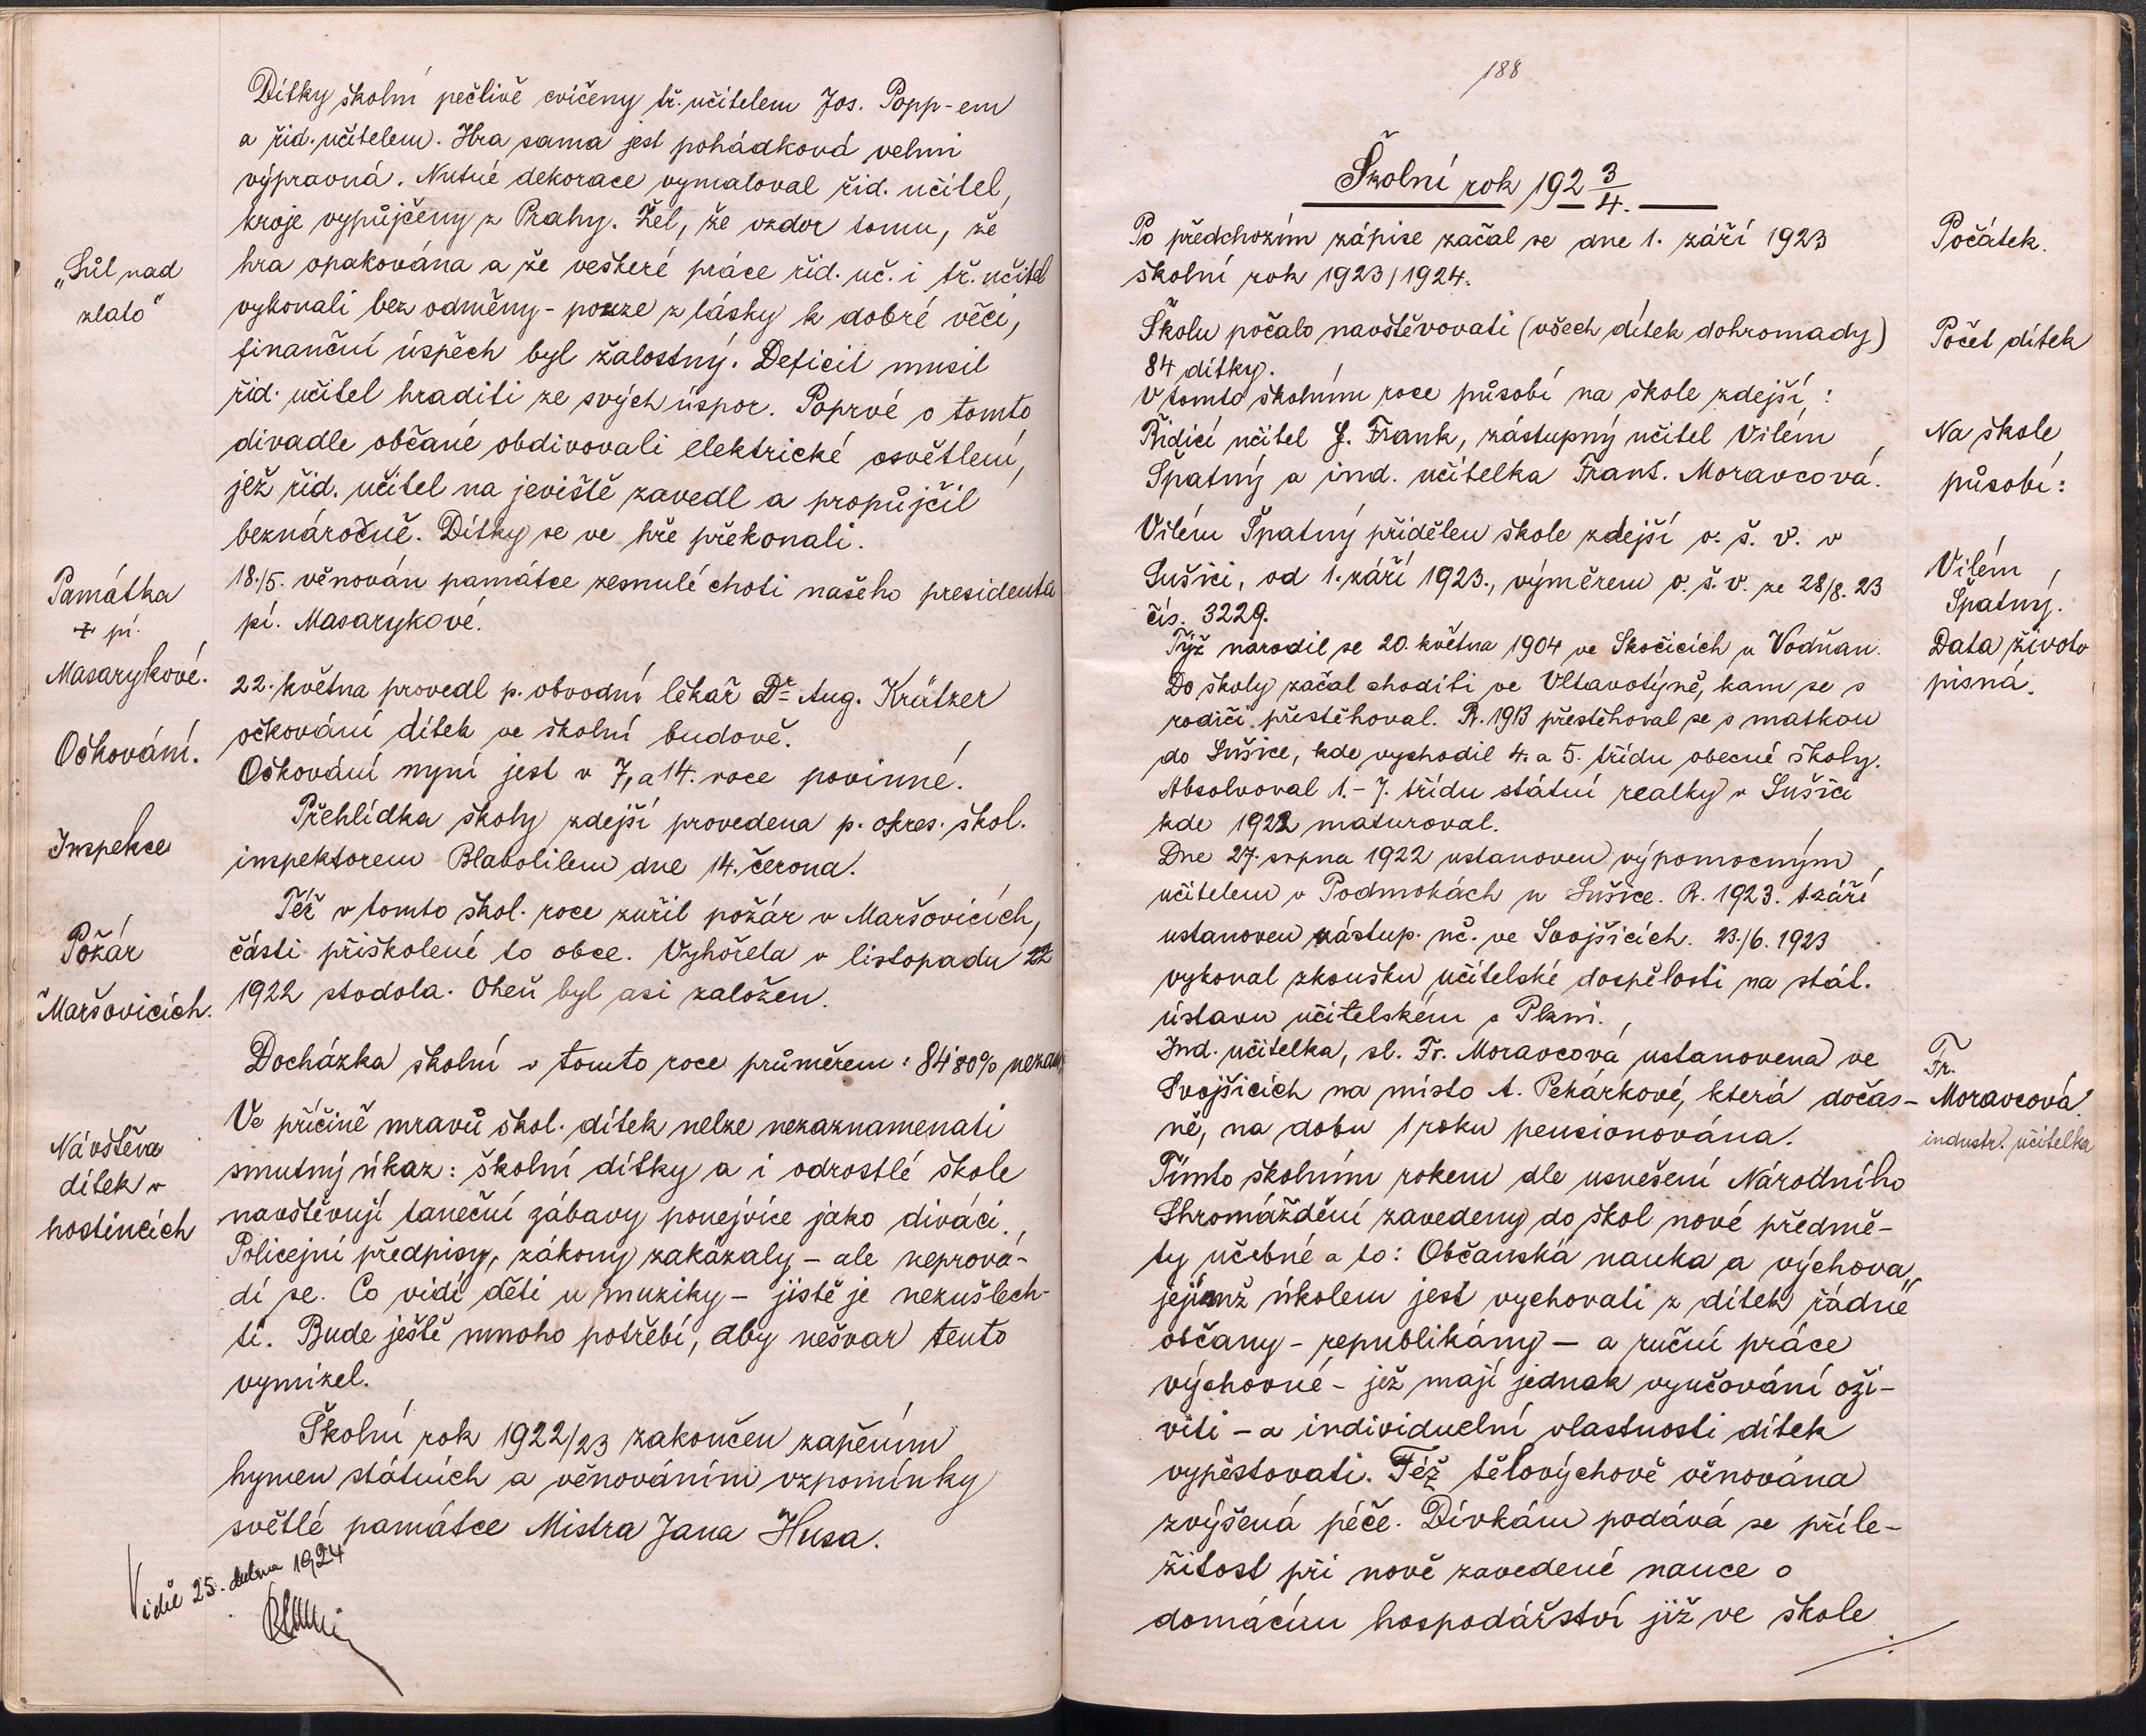 Dítky školní pečlivě cvičeny tř. učitelem Jos. Popp-em
a říd. učitelem. Hra sama jest pohádková velmi
výpravná. Nutné dekorace vymaloval říd. učitel,
kroje vypůjčeny z Prahy. Žel, že vzdor tomu, že
„Sůl nad
zlato"
hra opakována a že veškeré práce říd. uč. i tř. učitel
vykonali bez odměny - pouze z lásky k dobré věci,
finanční úspěch byl žalostný. Deficit musil
říd. učitel hraditi ze svých úspor. Poprvé o tomto
divadle občané obdivovali elektrické osvětlení,
jež říd. učitel na jeviště zavedl a propůjčil
beznáročně. Dítky se ve hře překonali.
Památka
+ pí.
Masarykové.
18./5. věnován památce zesnulé choti našeho presidenta
pí. Masarykové.
22. května provedl p. obvodní lékař Dr. Aug. Krätzer
Očkování.
očkování dítek ve školní budově.
Očkování nyní jest v 7, a 14. roce povinné.
Přehlídka školy zdejší provedena p. okres. škol.
Inspekce
inspektorem Blabolilem dne 14. června.
Též v tomto škol. roce zuřil požár v Maršovicích,
Požár
v Maršovicích.
části přiškolené to obce. Vyhořela v listopadu 22
1922 stodola. Oheň byl asi založen.
Docházka školní v tomto roce průměrem: 84·80%
Ve příčině mravů škol. dítek nelze nezaznamenati
Návštěva
dítek v
hostincích
smutný úkaz: školní dítky a i odrostlé škole
navštěvují taneční zábavy ponejvíce jako diváci.
Policejní předpisy, zákony zakázaly - ale neprová-
dí se. Co vidí děti u muziky - jistě je nezušlech-
tí. Bude ještě mnoho potřebí, aby nešvar tento
vymizel.
Školní rok 1922/23 zakončen zapěním
hymen státních a věnováním vzpomínky
světlé památce Mistra Jana Husa.
Viděl 25. dubna 1924
188
Školní rok 1923/4.
Po předchozím zápise začal se dne 1. září 1923
Počátek.
školní rok 1923/1924.
Školu počalo navštěvovati (všech dítek dohromady)
Počet dítek
84 dítky.
V tomto školním roce působí na škole zdejší:
Řídící učitel J. Frank, zástupný učitel Vilém
Na škole
Špatný a ind. učitelka Frant. Moravcová.
působí:
Vilém Špatný přidělen škole zdejší o. š. v. v
Sušici, od 1. září 1923., výměrem o. š. v. ze 28/8. 23
Vilém
Špatný.
čís. 3229.
Týž narodil se 20. května 1904 ve Skočicích u Vodňan.
Data životo
pisná.
Do školy začal choditi ve Vltavotýně, kam se s
rodiči přestěhoval. R. 1913 přestěhoval se s matkou
do Sušice, kde vychodil 4. a 5. třídu obecné školy.
Absolvoval 1. - 7. třídu státní realky v Sušici
kde 1922 maturoval.
Dne 27. srpna 1922 ustanoven výpomocným
učitelem v Podmokách u Sušice. R. 1923. 1. září
ustanoven zástup. uč. ve Svojšicích. 23./6. 1923
vykonal zkoušku učitelské dospělosti na stát.
ústavu učitelském v Plzni.
Ind. učitelka, sl. Fr. Moravcová ustanovena ve
Fr.
Moravcová
industr. učitelka
Svojšicích na místo A. Pekárkové, která dočas-
ně, na dobu 1 roku pensionována.
Tímto školním rokem dle usnešení Národního
Shromáždění zavedeny do škol nové předmě-
ty učebné a to: Občanská nauka a výchova,
jejímž úkolem jest vychovati z dítek řádné
občany - republikány - a ruční práce
výchovné - jež mají jednak vyučování oži-
viti - a individuelní vlastnosti dítek
vypěstovati. Též tělovýchově věnována
zvýšená péče. Dívkám podává se příle-
žitost při nově zavedené nauce o
domácím hospodářství již ve škole
./.